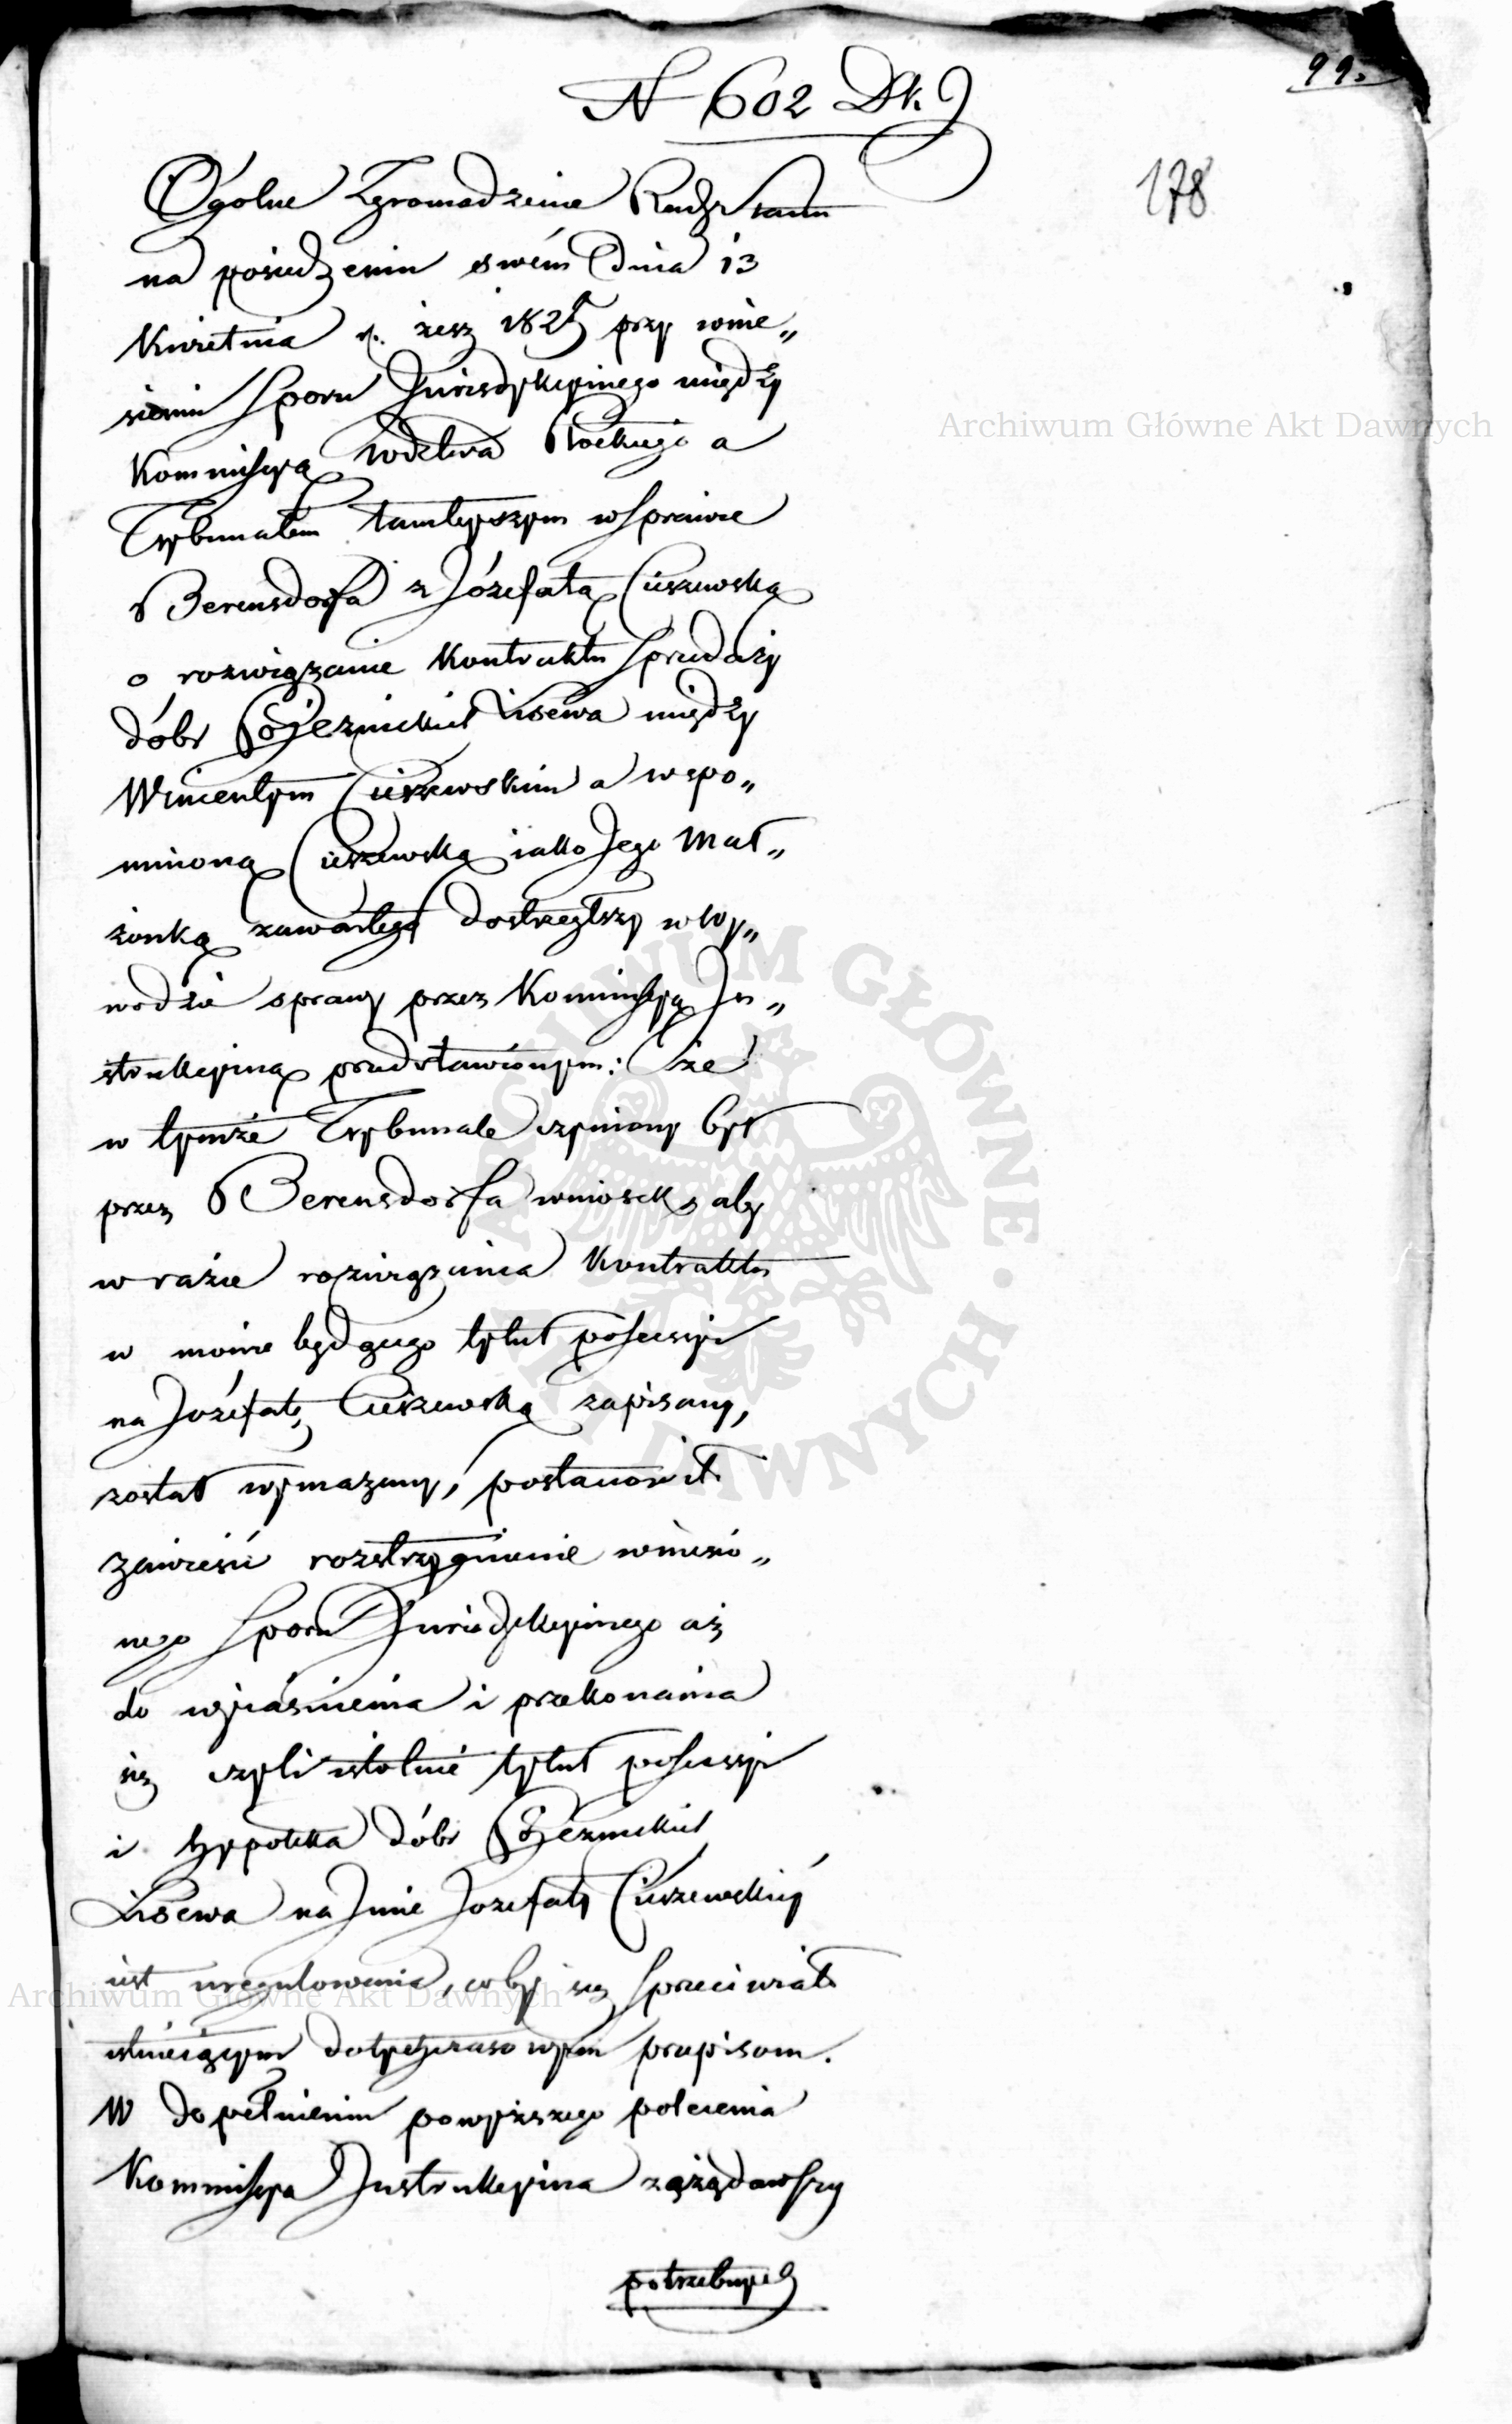 99.
N 602 Dk. J
178
Ogólne Zgromadzenie Rady Stanu
na posiedzeniu swém dnia 13
Kwietnia r. zesz 1825 przy wnie„
sieniu Sporu Jurisdykcyinego między
Kommissyą Wdztwa Płockiego a
Trybunałem tamteyszym w Sprawie
Berensdorfa z Józefatą Cieszewską
o rozwiązanie Kontraktu Sprzedaży
dóbr Lisewa między
Wincentym Cieszewskim a wspo„
mnioną Cieszewską iako Jego Mał„
żonką zawartego dostrzegłszy w wy„
wodzie sprawy przez Kommissyą In„
strukcyiną przedstawionym: że
w tymże Trybunale czyniony był
przez Berensdorfa wniosek, aby
w razie rozwiązania Kontraktu
w mowie będącego tytuł possessyi
na Józefatę Cieszewską zapisany,
został wymazany, postanowił
zawiesić rozstrzygnienie wniesio„
nego Sporu Jurisdykcyinego aż
do wyiaśnienia i przekonania
się czyli istotnie tytuł possessyi
i hypoteka dóbr
Lisewa na Imie Jozefaty Cieszewskiéy
iest uregulowana, coby się sprzeciwiało
istnieiącym dotychczasowym przepisom.
W dopełnieniu powyższego polecenia
Kommissya Instrukcyina zażądawszy
potrzebnych
Archiwum Główne Akt Dawnych
Archiwum Główne Akt Dawnych
ARCHIWUM GŁÓWNE AKT DAWNYCH